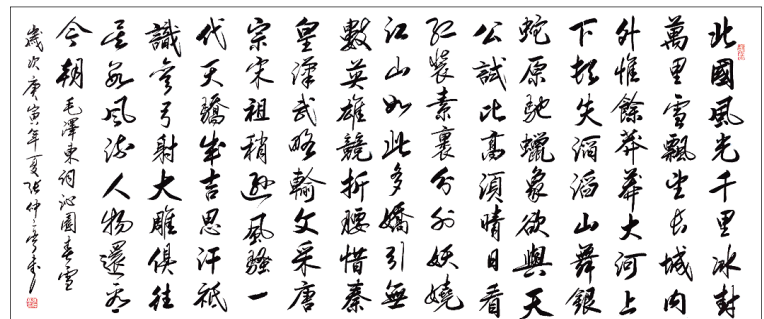 北國風光千里冰封
萬里雪飄望長城内
外惟餘莽莽大河上
下頓失滔滔山舞銀
蛇原馳蠟象欲與天
公試比高須晴日看
紅裝素裹分外妖嬈
江山如此多嬌引無
數英雄競折腰惜秦
皇漢武略輸文采唐
宗宋祖稍遜風騷一
代天驕成吉思汗祗
識彎弓射大雕俱往
矣數風流人物還看
今朝 毛澤東詞沁園春雪
歲次庚寅年夏張仲亭書